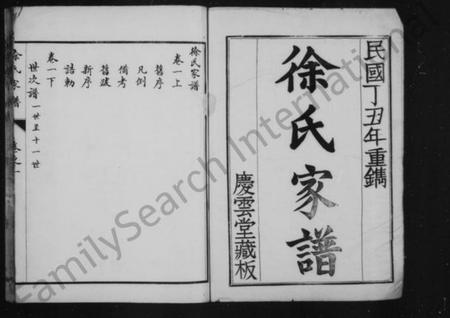 民國丁丑年重鐫
徐氏家譜
慶雲堂藏板
徐氏家譜
卷一上
舊序
凡例
備考
舊跋
新序
誥勅
卷一下
世次譜一世至十一世
徐氏家譜
FamilySearch International